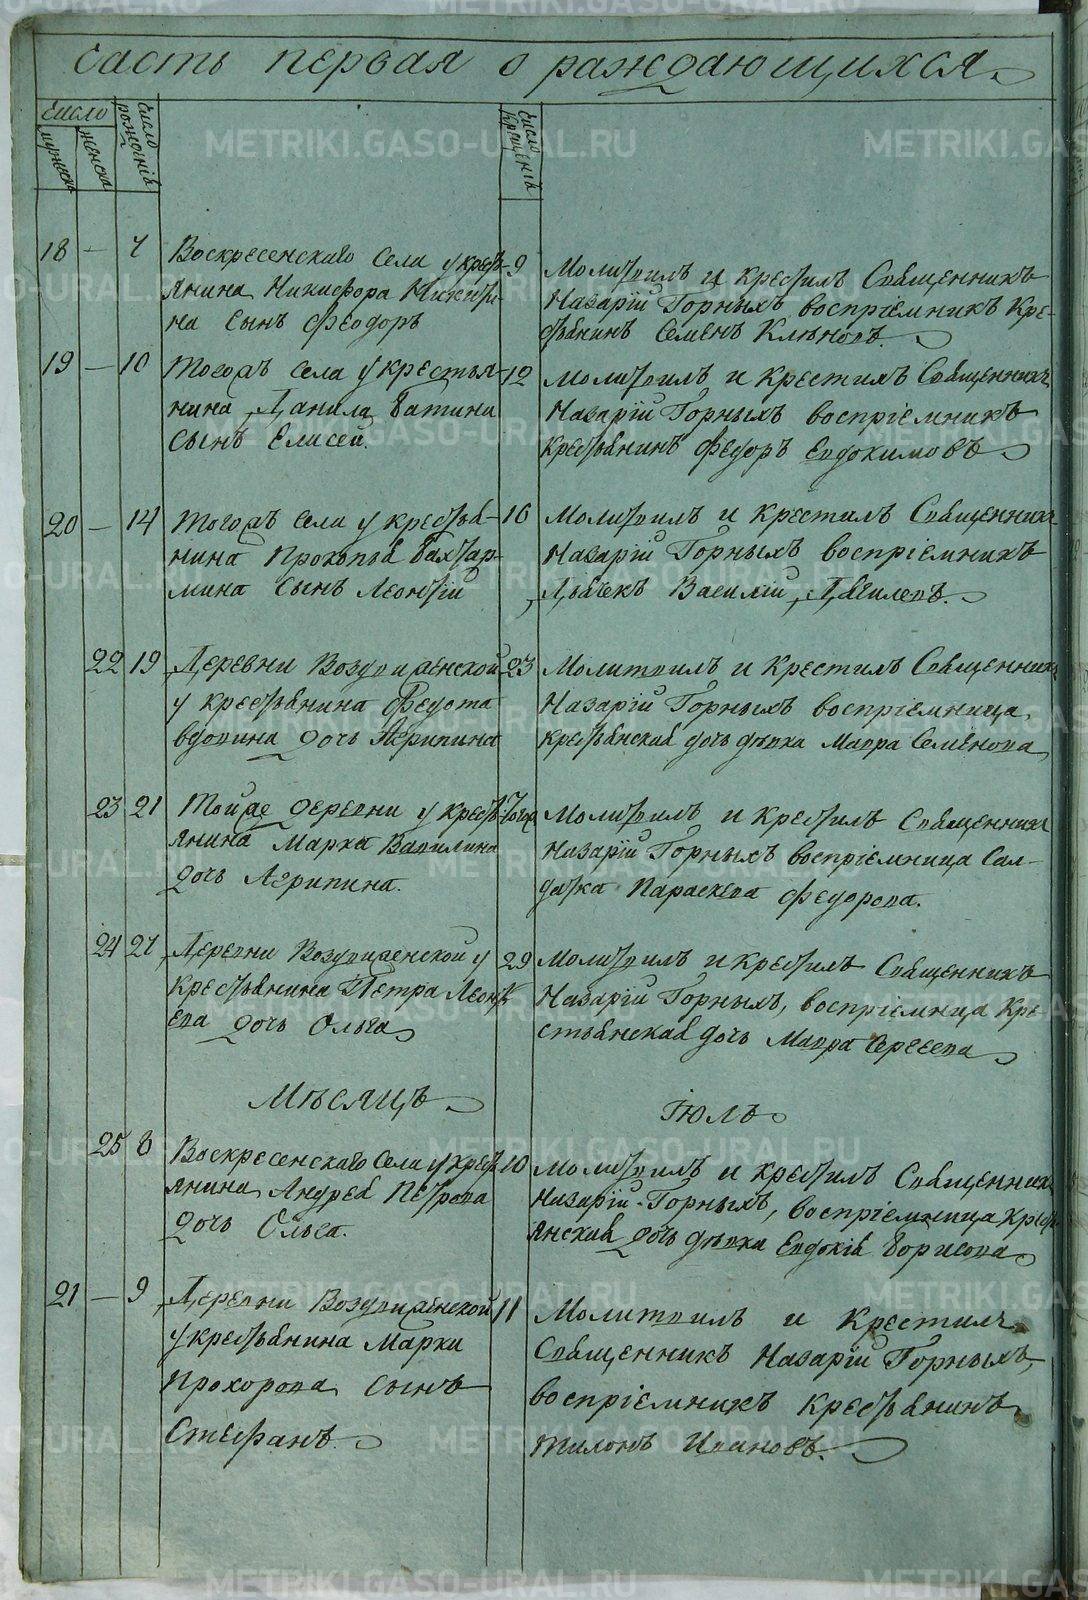 часть первая о раждающихся
Число
мужеска
женска
Число рожденій
Число крещеній
18 — 7 Воскресенскаго Села у крест-
янина Никифора Никити-
на Сынъ Феодоръ
9 Молитвилъ и крестилъ Священникъ
Назарій Горныхъ воспріемникъ Кре-
стьянинъ Семенъ
19 — 10 Тогожъ Села у крестья-
нина Данила Батина
Сынъ Елисей.
12 Молитвилъ и крестилъ Священникъ
Назарій Горныхъ воспріемникъ
крестьянинъ Федоръ Евдокимовъ
20 — 14 Тогожъ Села у крестья-
нина Прокопья Бахтар-
мина Сынъ Леонтій
16 Молитвилъ и крестилъ Священникъ
Назарій Горныхъ воспріемникъ
Дьячекъ Василій
22 19 Деревни Воздвиженской
у крестьянина Федота
вдовина дочь Агрипина
23 Молитвилъ и крестилъ Священникъ
Назарій Горныхъ воспріемница
крестьянская дочь дѣвка Мавра Семенова
23 21 Тойже деревни у крест-
янина Марка Вавилина
дочь Агрипина.
Молитвилъ и крестилъ Священникъ
Назарій Горныхъ воспріемница Сал-
датка Параскева Федорова.
24 27 Деревни Воздвиженской у
крестьянина Петра Леонть
ева дочь Ольга
29 Молитвилъ и крестилъ Священникъ
Назарій Горныхъ, воспріемница Кре-
стьянская дочь Мавра Сергеева
Мѣсяцъ Іюль
25 8 Воскресенскаго Села у крест
янина Андрея Петрова
дочь Ольга.
10 Молитвилъ и крестилъ Священникъ
Назарій Горныхъ, воспріемница Крест
янская дочь дѣвка Евдокія Борисова
21 — 9 Деревни Воздвиженской
у крестьянина Марки
Прохорова Сынъ
Стефанъ
11 Молитвилъ и Крестилъ
Священникъ Назарій Горныхъ,
воспріемникъ Крестьянинъ
Тихонъ Ивановъ.
METRIKI.GASO-URAL.RU